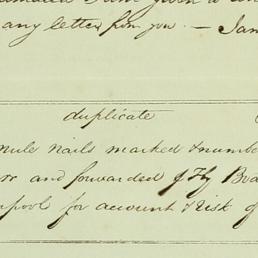 any letter from you. — Jan
duplicate
Mule nails marked & numbe
and forwarded ⅌ Fly Boa
pool for account & Risk of